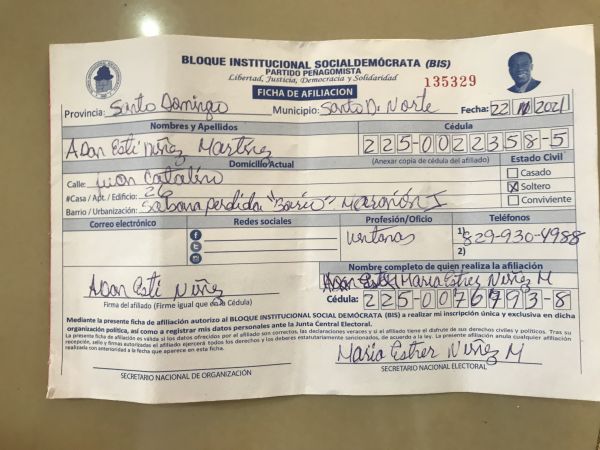 BLOQUE INSTITUCIONAL SOCIALDEMÓCRATA (BIS)
PARTIDO PEÑAGOMISTA
Libertad, Justicia, Democracia y Solidaridad
135329
FICHA DE AFILIACION
Provincia: Santo Domingo Municipio: Santo D. Norte Fecha: 22 2021
Nombres y Apellidos Cédula
Adan Esti Núñez Martinez 225-0022358-5
Domicilio Actual (Anexar copia de cédula del afiliado) Estado Civil
Calle: Juan Catalino Casado
#Casa / Apt. / Edificio: 26 Soltero
Barrio / Urbanización: Sabana perdida "Barrio" Marañón I Conviviente
Correo electrónico Redes sociales Profesión/Oficio Teléfonos
Ventanas 1) 829-930-4988
2)
Nombre completo de quien realiza la afiliación
Adan Esti Núñez Maria Estrez Núñez M
Firma del afiliado (Firme igual que en la Cédula) Cédula: 225-0076793-8
Mediante la presente ficha de afiliación autorizo al BLOQUE INSTITUCIONAL SOCIAL DEMÓCRATA (BIS) a realizar mi inscripción única y exclusiva en dicha
organización política, así como a registrar mis datos personales ante la Junta Central Electoral.
La presente ficha de afiliación es válida si los datos ofrecidos por el afiliado son correctos, las declaraciones veraces y si el afiliado tiene el disfrute de sus derechos civiles y políticos. Tras su
recepción, sello y firmas autorizadas el afiliado ejercerá todos los derechos y los deberes estatutariamente sancionados, de acuerdo a la ley. La presente afiliación anula cualquier afiliación
realizada con anterioridad a la fecha que aparece en esta ficha.
Maria Estrer Núñez M
SECRETARIO NACIONAL DE ORGANIZACIÓN SECRETARIO NACIONAL ELECTORAL